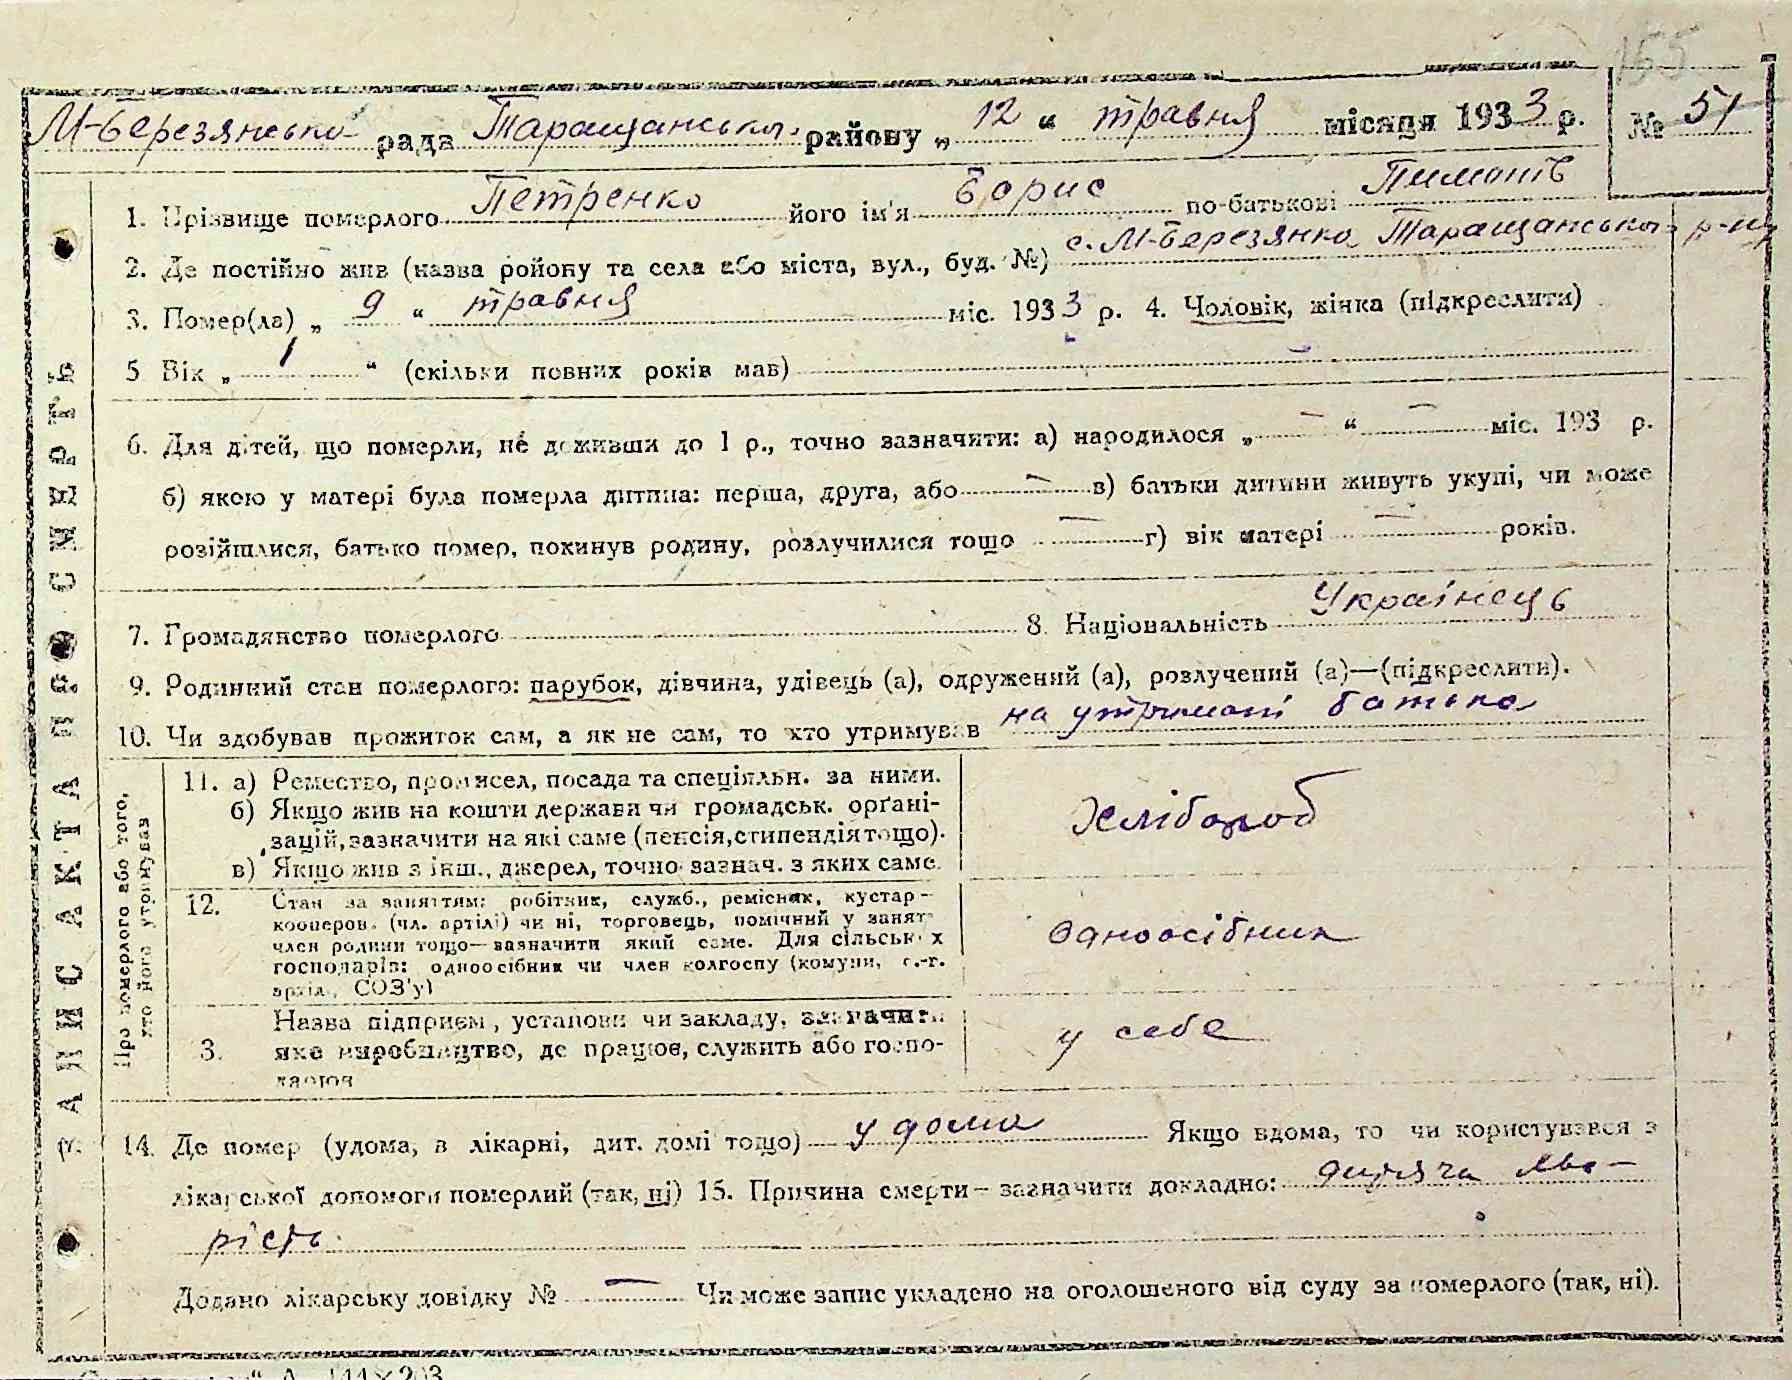 155
М-Березянська рада Таращанськ. району „ 12 “ травня місяця 1933 р. № 51
1. Прізвище померлого Петренко його ім'я Борис по-батькові
2. Де постійно жив (назва ройону та села або міста, вул., буд. №) с. М-Березянка Таращанськ. р-ну
3. Помер(ла) „ 9 “ травня міс. 1933 р. 4. Чоловік, жінка (підкреслити)
5 Вік „ 1 “ (скільки повних років мав)
6. Для дітей, що померли, не доживши до 1 р., точно зазначити: а) народилося „ — “ — міс. 193 р.
б) якою у матері була померла дитина: перша, друга, або — в) батьки дитини живуть укупі, чи може
розійшлися, батько помер, покинув родину, розлучилися тощо — г) вік матері — років.
7. Громадянство померлого 8. Національність Українець
9. Родинний стан померлого: парубок, дівчина, удівець (а), одружений (а), розлучений (а)—(підкреслити).
10. Чи здобував прожиток сам, а як не сам, то хто утримував на утримані батька
ЗАПИС АКТА ПРО СМЕРТЬ
Про померлого або того,
хто його утримував
11. а) Ремество, промисел, посада та спеціяльн. за ними.
б) Якщо жив на кошти держави чи громадськ. орґані-
зацій, зазначити на які саме (пенсія, стипендія тощо).
в) Якщо жив з інш., джерел, точно зазнач. з яких саме.
Хлібороб
12. Стан за заняттям: робітник, служб., ремісник, кустар-
кооперов. (чл. артілі) чи ні, торговець, помічний у занят
член родини тощо—зазначити який саме. Для сільськ х
господарів: одноосібник чи член колгоспу (комуни, с.-г.
артіл., СОЗ'у)
Одноосібник
3. Назва підприєм, установи чи закладу, зазначити
яке виробництво, де працює, служить або госпо-
дарює
у себе
14. Де помер (удома, в лікарні, дит. домі тощо) у дома Якщо вдома, то чи користувався з
лікарської допомоги померлий (так, ні) 15. Причина смерти—зазначити докладно: дитяча хво-
рість.
Додано лікарську довідку № — Чи може запис укладено на оголошеного від суду за померлого (так, ні).